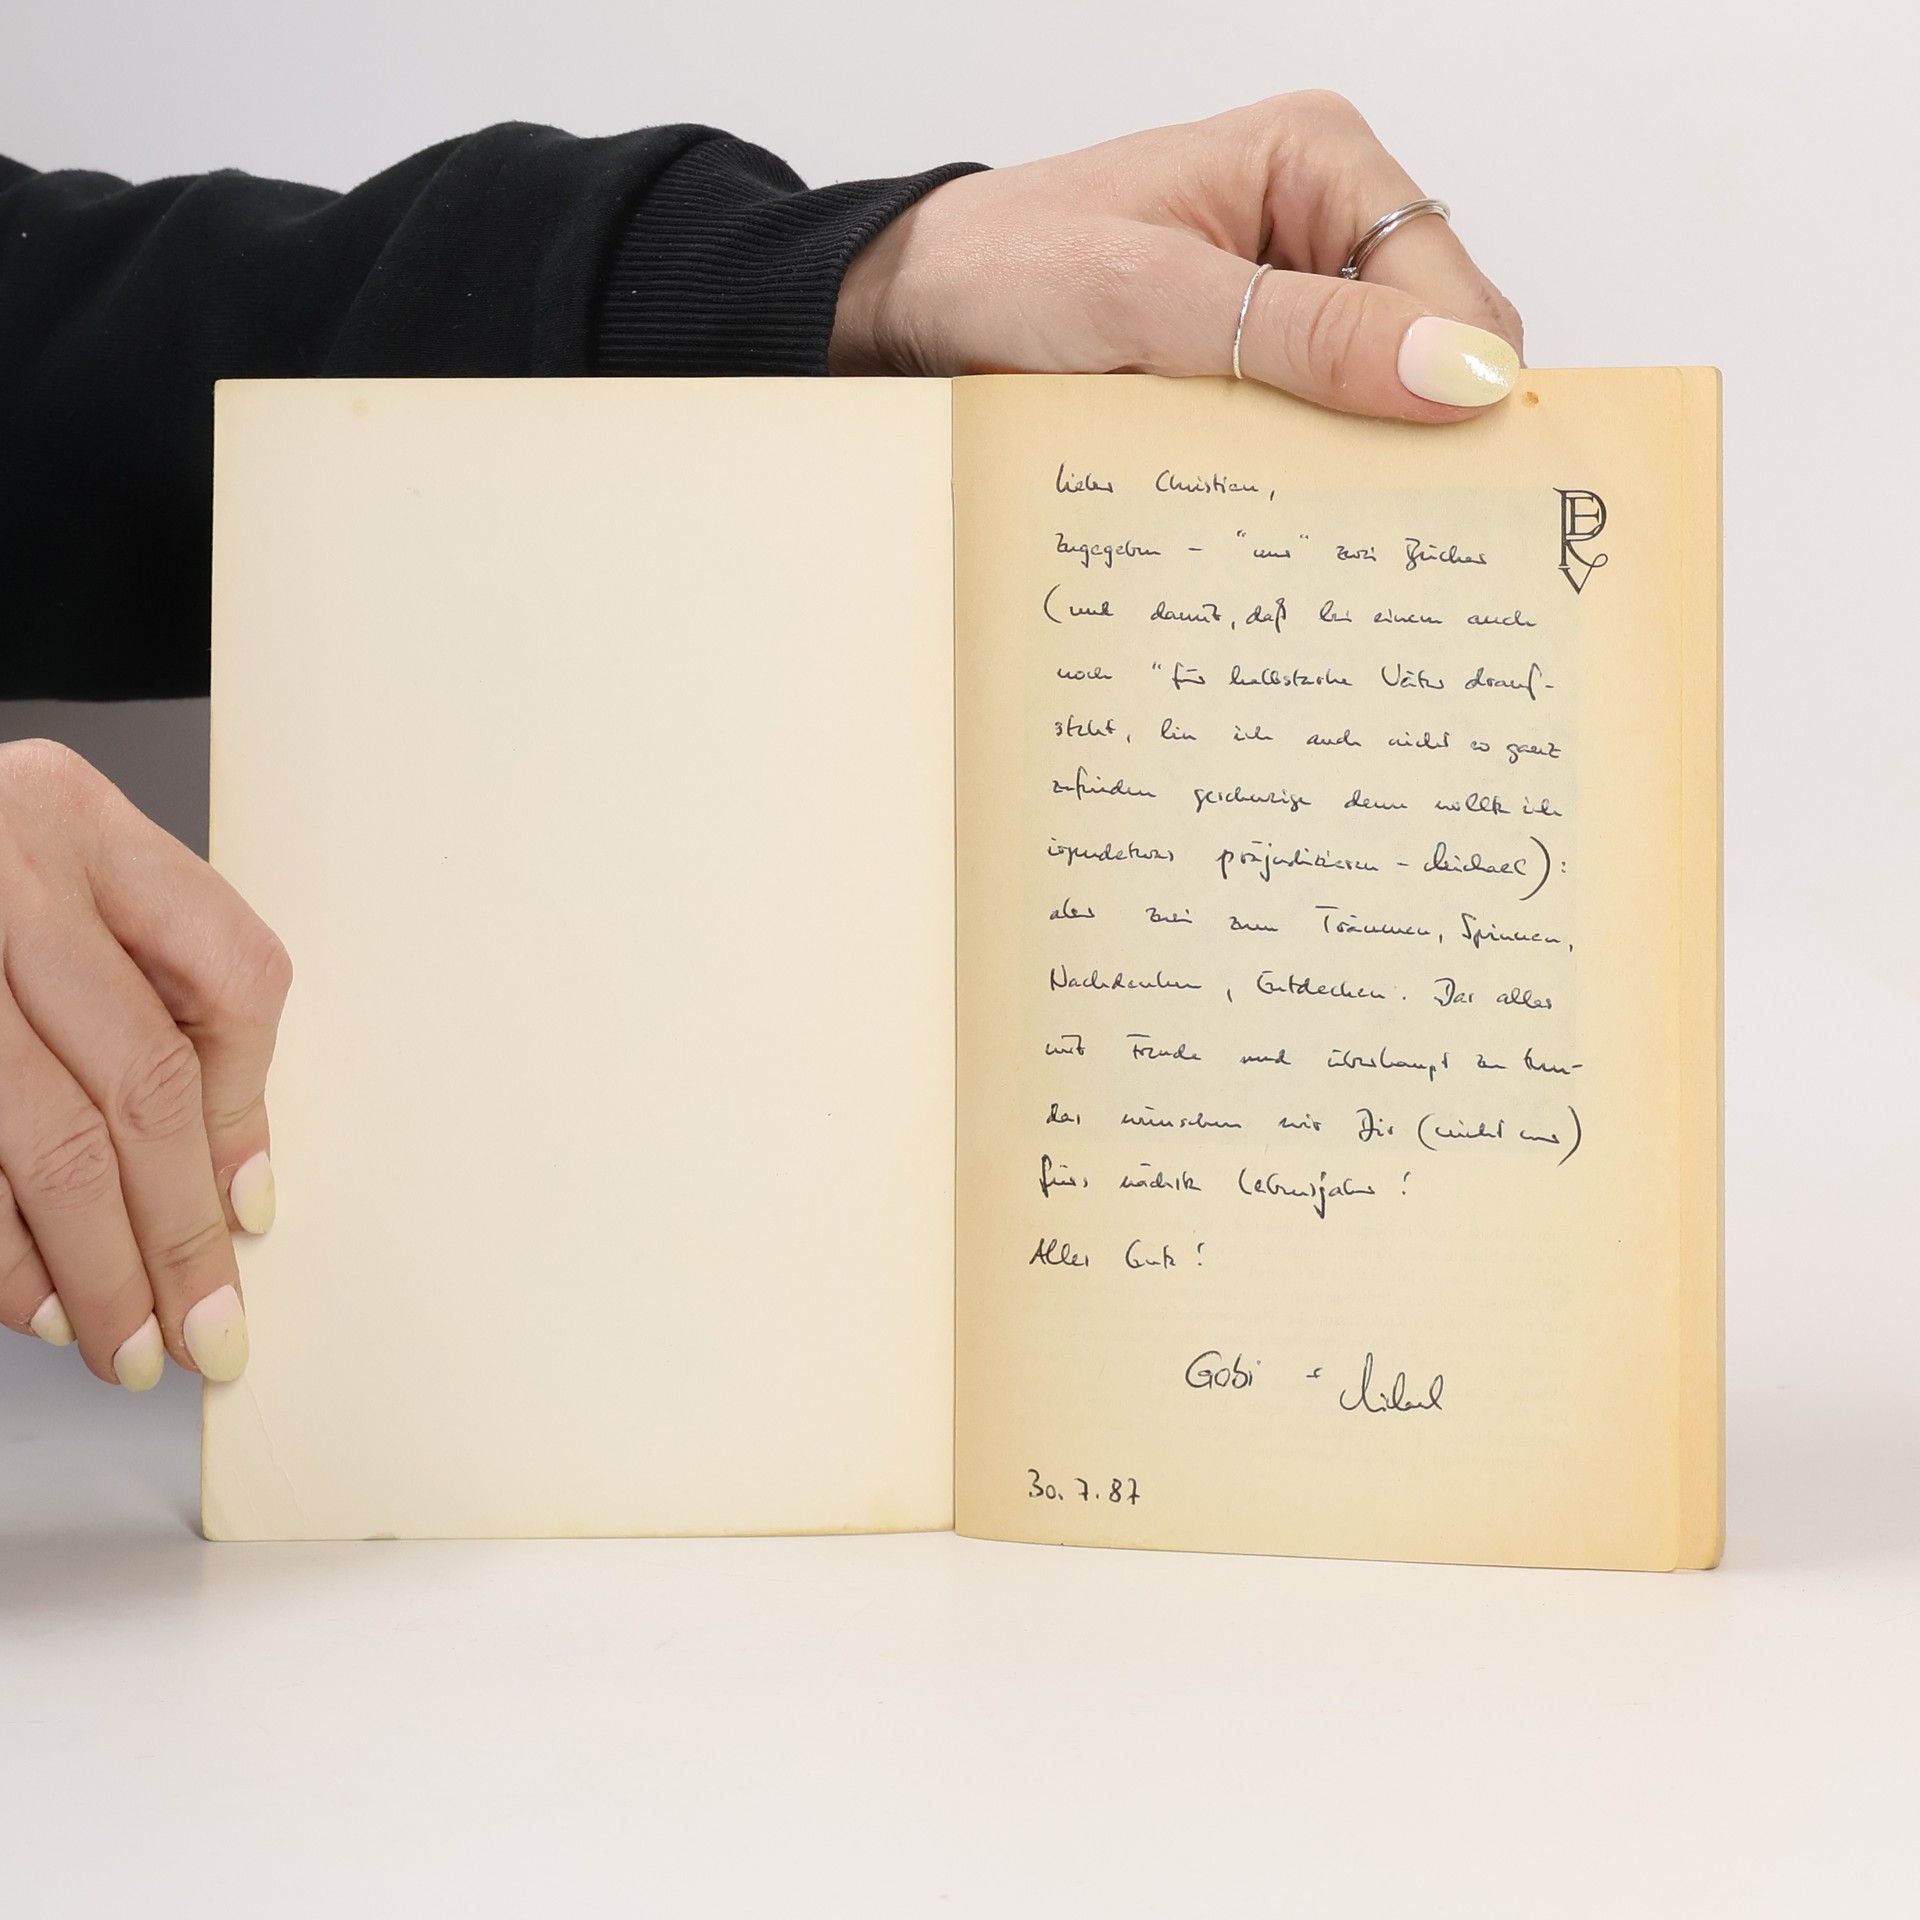 Lieber Christian,
zugegeben - "nur" zwei Bücher
(und damit, daß bei einem auch
noch "für halbstarke Väter drauf-
steht, bin ich auch nicht so ganz
zufrieden geschweige denn wollte ich
irgendetwas präjudizieren - Michael):
aber zwei zum Träumen, Spinnen,
Nachdenken, Entdecken. Das alles
mit Freude und überhaupt zu tun-
das wünschen wir Dir (nicht nur)
fürs nächste Lebensjahr!
Alles Gute!
Gobi + Michael
30.7.87